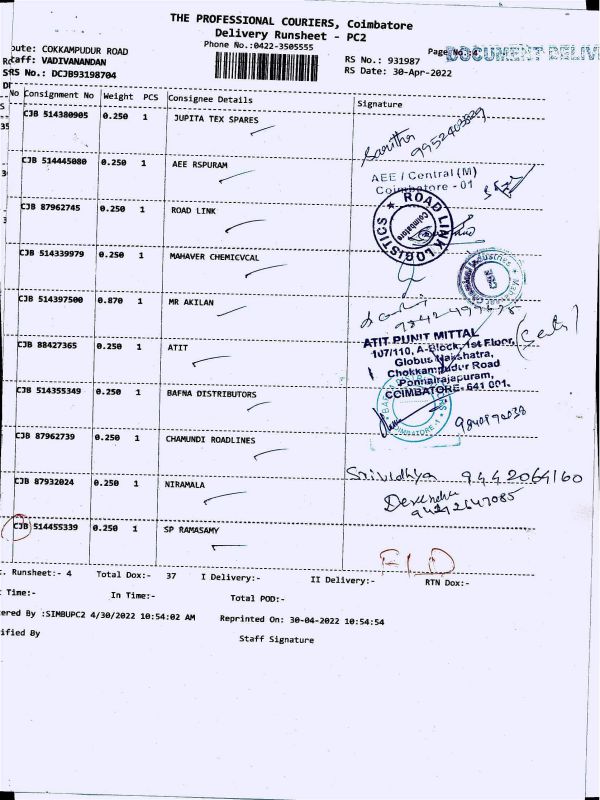 THE PROFESSIONAL COURIERS, Coimbatore
Delivery Runsheet - PC2
Phone No.:0422-3505555
Page No.:4
DOCUMENT DELIV
oute: COKKAMPUDUR ROAD
taff: VADIVANANDAN
RS No.: 931987
SRS No.: DCJB93198704
RS Date: 30-Apr-2022
No Consignment No Weight PCS Consignee Details Signature
CJB 514380905 0.250 1 JUPITA TEX SPARES
Saritha
9952403829
CJB 514445080 0.250 1 AEE RSPURAM
AEE / Central (M)
Coimbatore - 01
CJB 87962745 0.250 1 ROAD LINK
ROAD LINK LOGISTICS
Coimbatore
CJB 514339979 0.250 1 MAHAVER CHEMICVCAL
CJB 514397500 0.870 1 MR AKILAN
CJB 88427365 0.250 1 ATIT
ATIT PUNIT MITTAL
107/110, A-Block, 1st Floor,
Globus Nakshatra,
Chokkampudur Road
Ponnairajapuram,
COIMBATORE- 641 001.
CJB 514355349 0.250 1 BAFNA DISTRIBUTORS
CJB 87962739 0.250 1 CHAMUNDI ROADLINES
CJB 87932024 0.250 1 NIRAMALA
Srividhya 9442064160
CJB 514455339 0.250 1 SP RAMASAMY
. Runsheet:- 4 Total Dox:- 37 I Delivery:- II Delivery:- RTN Dox:-
Time:- In Time:- Total POD:-
ered By :SIMBUPC2 4/30/2022 10:54:02 AM Reprinted On: 30-04-2022 10:54:54
ified By Staff Signature